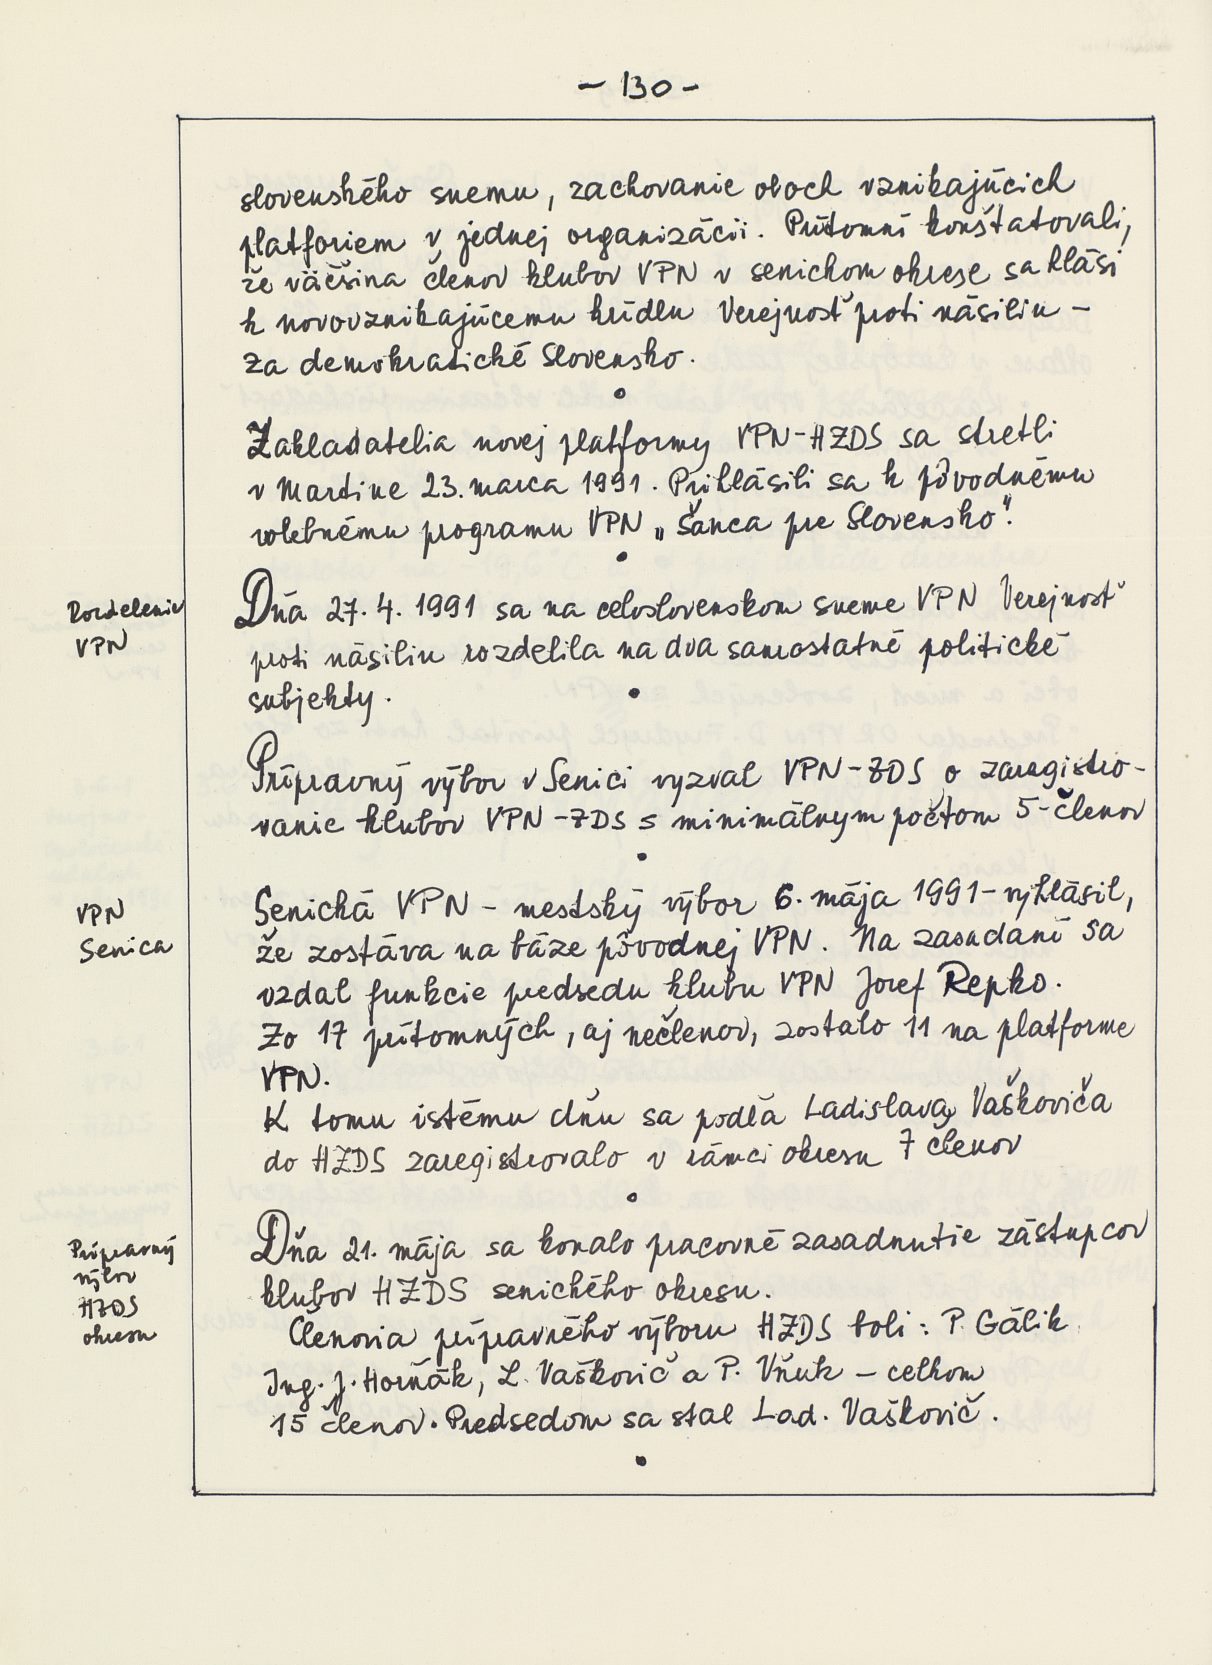 - 130 -
slovenského snemu, zachovanie oboch vznikajúcich
platforiem v jednej organizácii. Prítomní konštatovali,
že väčšina členov klubov VPN v senickom okrese sa hlási
k novovznikajúcemu krídlu Verejnosť proti násiliu -
za demokratické Slovensko.
Zakladatelia novej platformy VPN-HZDS sa stretli
v Martine 23. marca 1991. Prihlásili sa k pôvodnému
volebnému programu VPN „Šanca pre Slovensko".
Rozdelenie
VPN
Dňa 27. 4. 1991 sa na celoslovenskom sneme VPN Verejnosť
proti násiliu rozdelila na dva samostatné politické
subjekty.
Prípravný výbor v Senici vyzval VPN-ZDS o zaregistro-
vanie klubov VPN-ZDS s minimálnym počtom 5-členov
VPN
Senica
Senická VPN - mestský výbor 6. mája 1991 - vyhlásil,
že zostáva na báze pôvodnej VPN. Na zasadaní sa
vzdal funkcie predsedu klubu VPN Jozef Repko.
Zo 17 prítomných, aj nečlenov, zostalo 11 na platforme
VPN.
K tomu istému dňu sa podľa Ladislava Vaškoviča
do HZDS zaregistrovalo v rámci okresu 7 členov
Prípravný
výbor
HZDS
okresu
Dňa 21. mája sa konalo pracovné zasadnutie zástupcov
klubov HZDS senického okresu.
Členovia prípravného výboru HZDS boli: P. Gálik
Ing. J. Horňák, L. Vaškovič a P. Vňuk - celkom
15 členov. Predsedom sa stal Lad. Vaškovič.